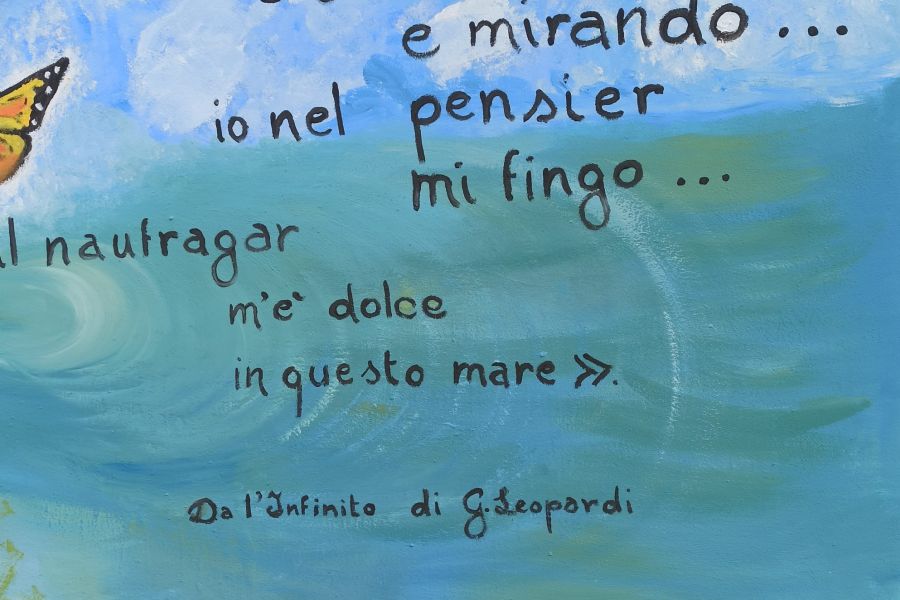 e mirando ...
io nel pensier
mi fingo ...
naufragar
m'è dolce
in questo mare ».
Da l'Infinito di G. Leopardi